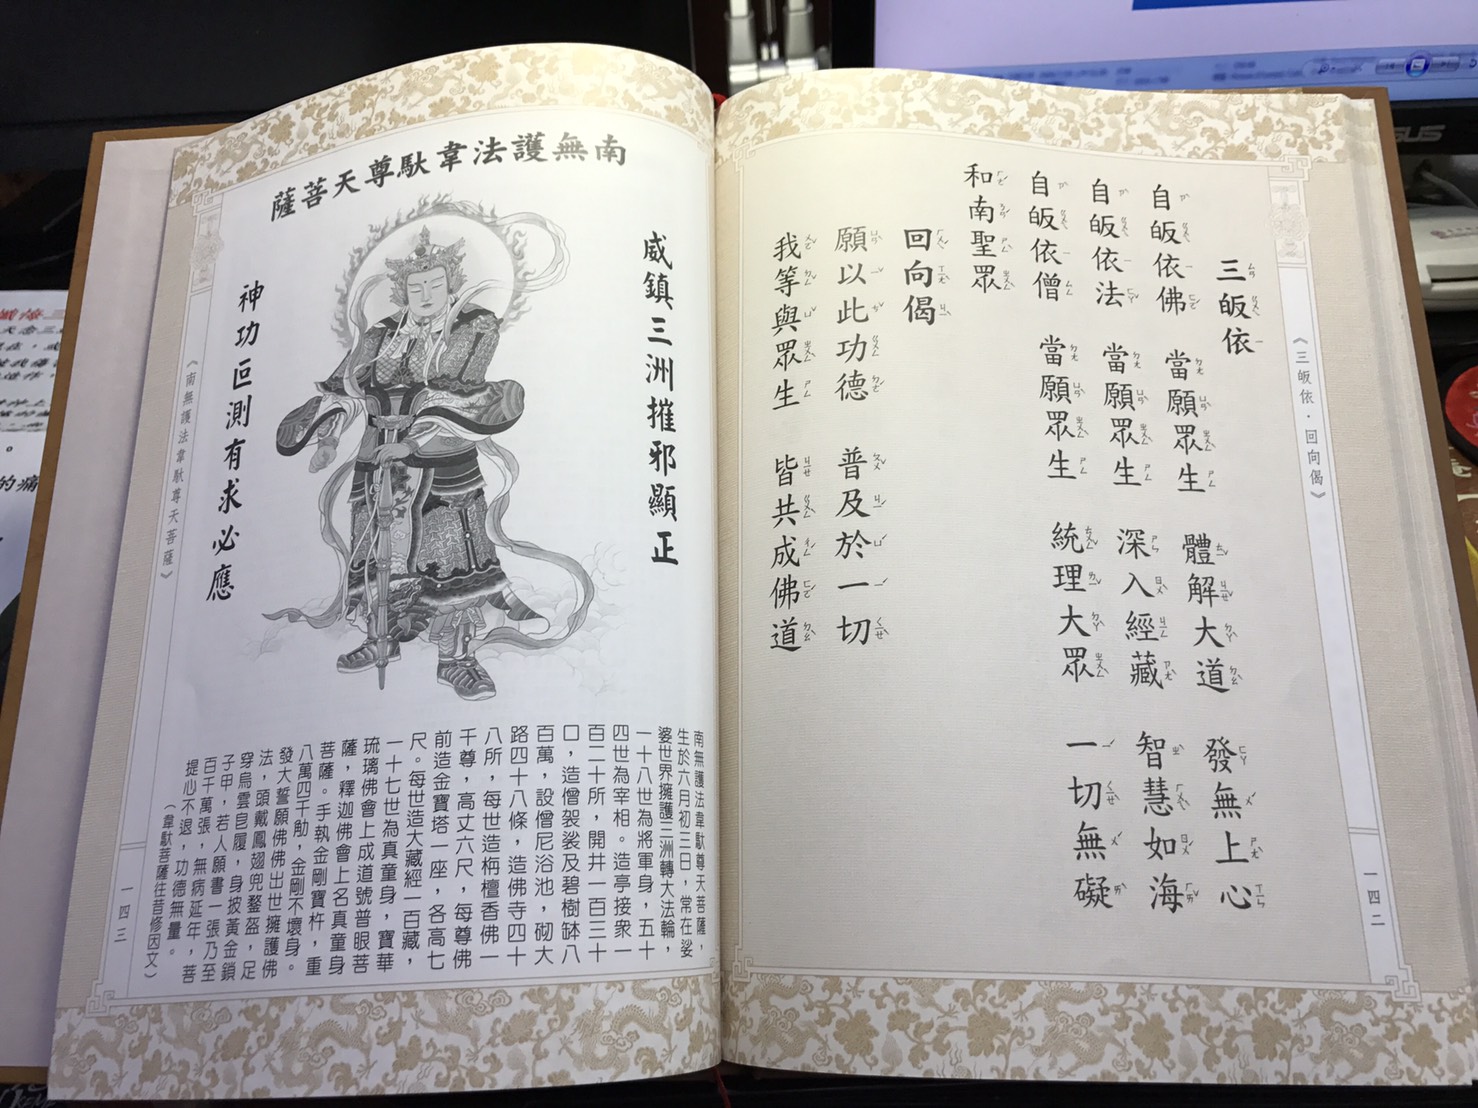 三皈依
自皈依佛 當願眾生 體解大道 發無上心
自皈依法 當願眾生 深入經藏 智慧如海
自皈依僧 當願眾生 統理大眾 一切無礙
和南聖眾
回向偈
願以此功德 普及於一切
我等與眾生 皆共成佛道
《三皈依．回向偈》
一四二
南無護法韋馱尊天菩薩
威鎮三洲摧邪顯正
神功叵測有求必應
南無護法韋馱尊天菩薩，
生於六月初三日，常在娑
婆世界擁護三洲轉大法輪，
一十八世為將軍身，五十
四世為宰相。造亭接眾一
百二十所，開井一百三十
口，造僧袈裟及碧樹缽八
百萬，設僧尼浴池，砌大
路四十八條，造佛寺四十
八所，每世造栴檀香佛一
千尊，高丈六尺，每尊佛
前造金寶塔一座，各高七
尺。每世造大藏經一百藏，
一十七世為真童身，寶華
琉璃佛會上成道號普眼菩
薩，釋迦佛會上名真童身
菩薩。手執金剛寶杵，重
八萬四千觔，金剛不壞身。
發大誓願佛佛出世擁護佛
法，頭戴鳳翅兜鍪盔，足
穿烏雲皂履，身披黃金鎖
子甲，若人願書一張乃至
百千萬張，無病延年，菩
提心不退，功德無量。
（韋馱菩薩往昔修因文）
《南無護法韋馱尊天菩薩》
一四三
的痛
SUS